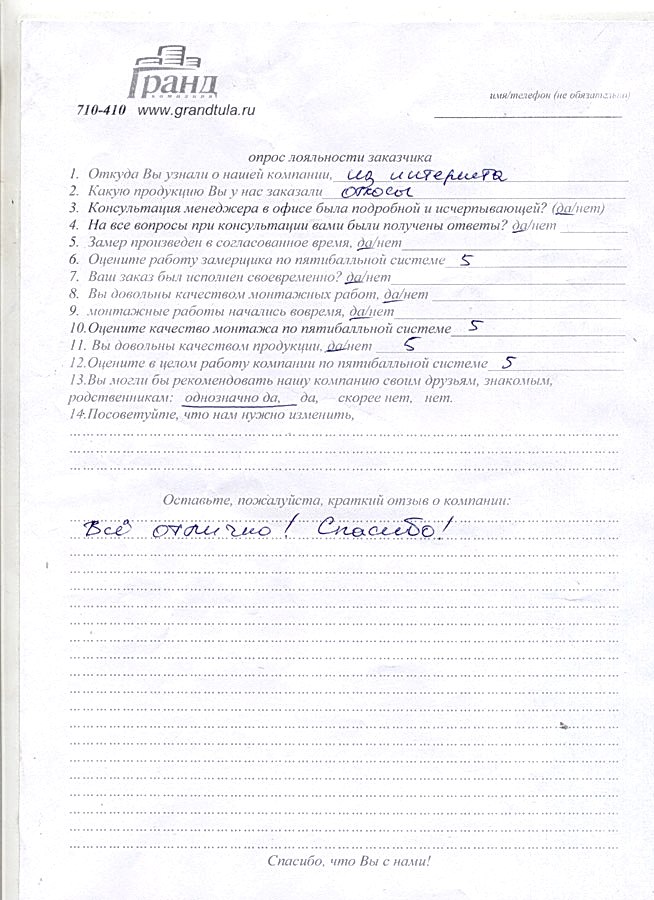 Гранд
компания
710-410 www.grandtula.ru
имя/телефон (не обязательно)
опрос лояльности заказчика
1. Откуда Вы узнали о нашей компании, из интернета
2. Какую продукцию Вы у нас заказали откосы
3. Консультация менеджера в офисе была подробной и исчерпывающей? (да/нет)
4. На все вопросы при консультации вами были получены ответы? да/нет
5. Замер произведен в согласованное время, да/нет
6. Оцените работу замерщика по пятибалльной системе 5
7. Ваш заказ был исполнен своевременно? да/нет
8. Вы довольны качеством монтажных работ, да/нет
9. монтажные работы начались вовремя, да/нет
10.Оцените качество монтажа по пятибалльной системе 5
11. Вы довольны качеством продукции, да/нет 5
12.Оцените в целом работу компании по пятибалльной системе 5
13.Вы могли бы рекомендовать нашу компанию своим друзьям, знакомым,
родственникам: однозначно да, да, скорее нет, нет.
14.Посоветуйте, что нам нужно изменить,
Оставьте, пожалуйста, краткий отзыв о компании:
Всё отлично! Спасибо!
Спасибо, что Вы с нами!